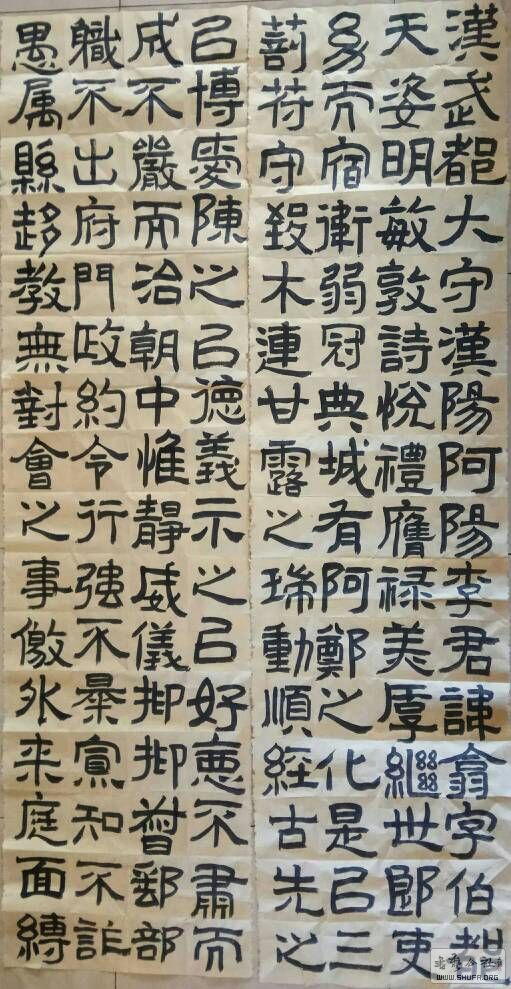 漢武都大守漢陽阿陽李君諱翕字伯都
天姿明敏敦詩悅禮膺禄美厚繼世郎吏
幼而宿衛弱冠典城有阿鄭之化是以三
剖符守致木連甘露之瑞動順經古先之
以博愛陳之以德義示之以好惡不肅而
成不嚴而治朝中惟靜威儀抑抑督郵部
職不出府門政約令行強不暴寡知不詐
愚属縣趍教無對會之事徼外来庭面縛
WWW.SHUFA.ORG